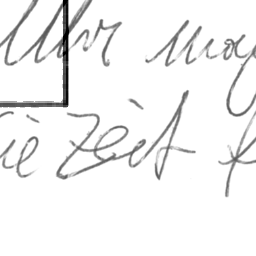 Uhr mog
ie Zeit f